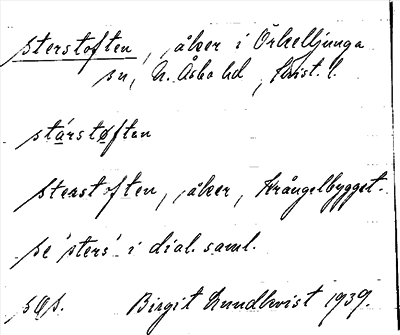 sterstoften, åker i Örkelljunga
sn, N. Åsbo hd, Krist. l.
stárstøften
sterstoften, åker, Krångelbygget.
se 'sters' i dial. saml.
sås. Birgit Lundkvist 1939.